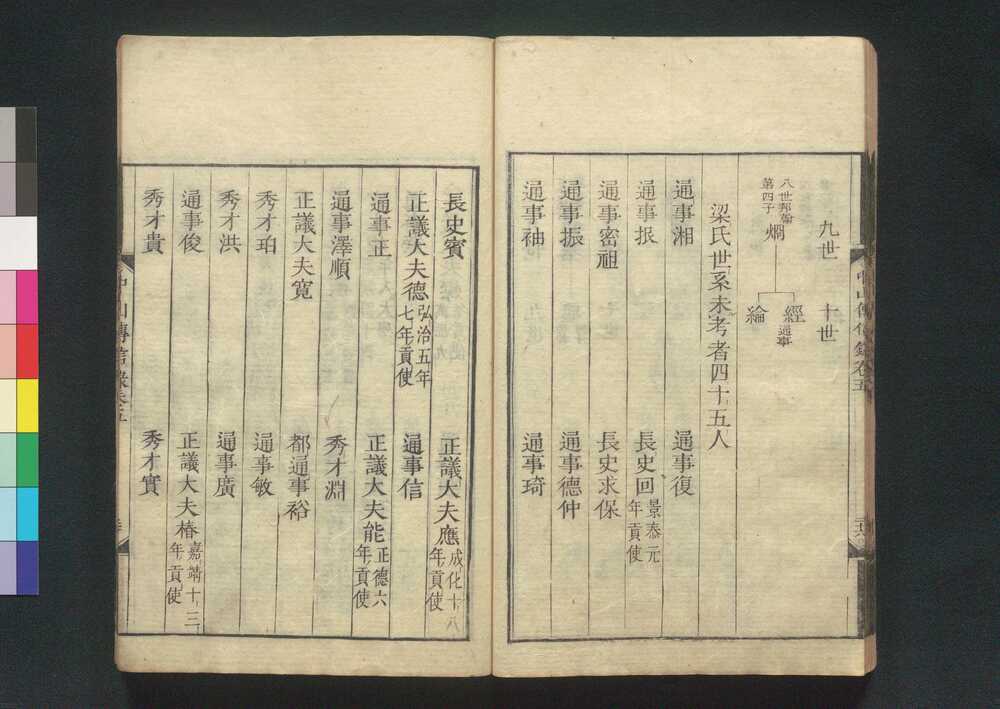 九世 十世
八世邦翰
第四子
烱
經 通事
綸
梁氏世系未考者四十五人
通事湘 通事復
通事扳 長史回 景泰元年貢使
通事密祖 長史求保
通事振 通事德仲
通事袖 通事琦
長史賓 正議大夫應 成化十八年貢使
正議大夫德 弘治五年七年貢使 通事信
通事正 正議大夫能 正德六年貢使
通事澤順 秀才淵
正議大夫寬 都通事裕
秀才珀 通事敏
秀才洪 通事廣
通事俊 正議大夫椿 嘉靖十三年貢使
秀才貴 秀才實
中山傳信錄卷五